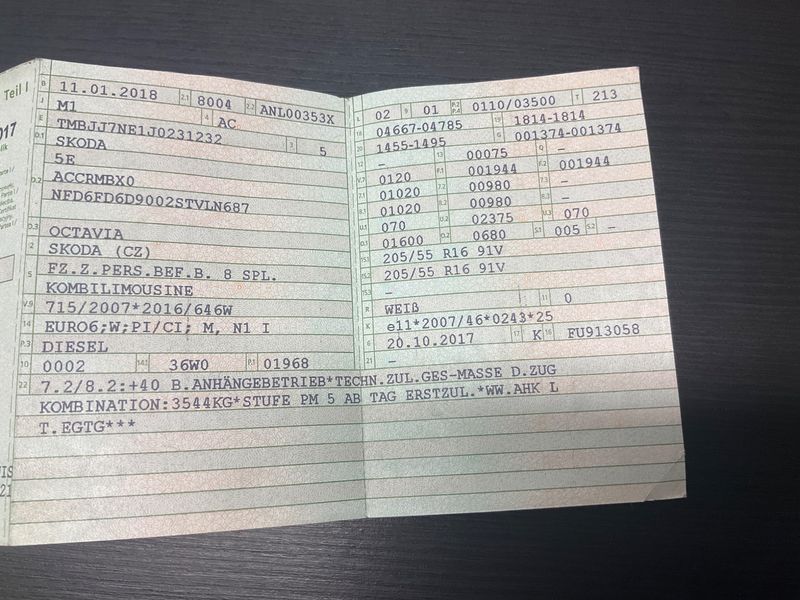 Teil I
B 11.01.2018 2.1 8004 2.2 ANL00353X
J M1 4 AC
E TMBJJ7NE1J0231232 3 5
D.1 SKODA
5E
D.2 ACCRMBX0
NFD6FD6D9002STVLN687
D.3 OCTAVIA
2 SKODA (CZ)
5 FZ.Z.PERS.BEF.B. 8 SPL.
KOMBILIMOUSINE
V.9 715/2007*2016/646W
14 EURO6;W;PI/CI; M, N1 I
P.3 DIESEL
10 0002 14.1 36W0 P.1 01968
L 02 9 01 P.2 P.4 0110/03500 T 213
18 04667-04785 19 1814-1814
20 1455-1495 G 001374-001374
12 – 13 00075 Q –
V.7 0120 F.1 001944 F.2 001944
7.1 01020 7.2 00980 7.3 –
8.1 01020 8.2 00980 8.3 –
U.1 070 U.2 02375 U.3 070
O.1 01600 O.2 0680 S.1 005 S.2 –
15.1 205/55 R16 91V
15.2 205/55 R16 91V
15.3 –
R WEIß 11 0
K e11*2007/46*0243*25
6 20.10.2017 17 K 16 FU913058
21 –
22 7.2/8.2:+40 B.ANHÄNGEBETRIEB*TECHN.ZUL.GES-MASSE D.ZUG
KOMBINATION:3544KG*STUFE PM 5 AB TAG ERSTZUL.*WW.AHK L
T.EGTG***